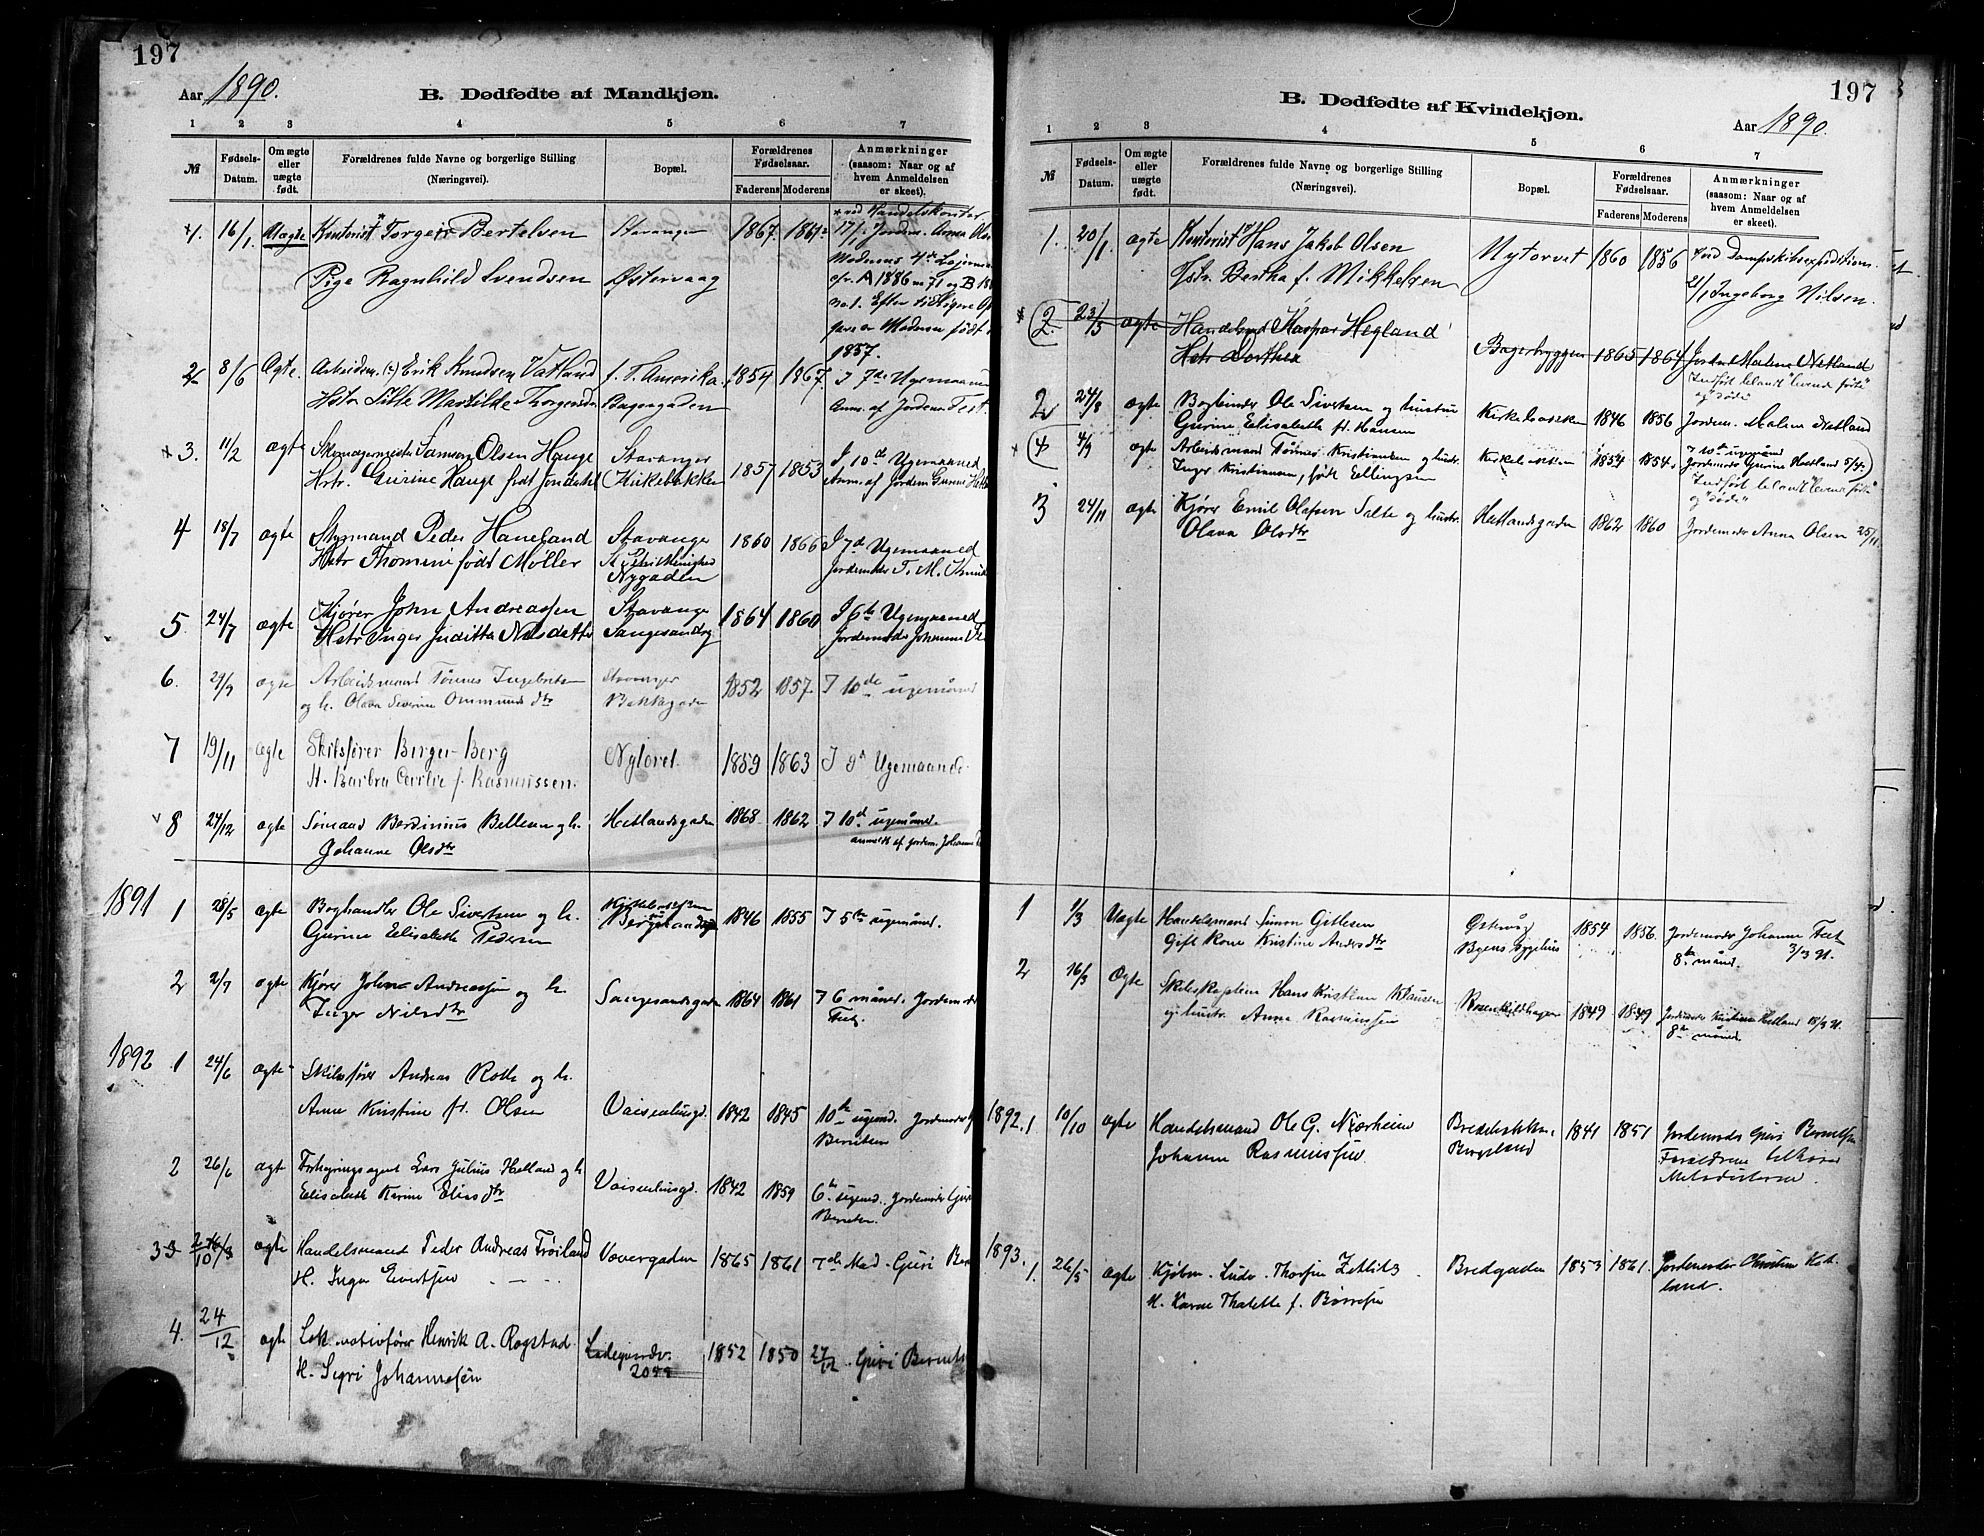 197
Aar 1890.
B. Dødfødte af Mandkjøn.
1 2 3 4 5 6 7
№
Fødsels-Datum.
Om ægte eller uægte født.
Forældrenes fulde Navne og borgerlige Stilling (Næringsvei).
Bopæl.
Forældrenes Fødselsaar.
Faderens Moderens
Anmærkninger (saasom: Naar og af hvem Anmeldelsen er skeet).
1. 16/1 Uægte Kontorist Torgeir Bertelsen Stavanger 1867.
* ved Handelskontor
17/1 Jordm. Anna Olsen
Pige Ragnhild Svendsen Østervaag
Moderens 4de
cfr. A 1886 no 71 og B
no 1. Efter
Moderen født
1857.
2 8/6 Ægte. Arbeidsm. Erik Knudsen Vatland f. T. Amerika 1854 1867. I 7de Ugemaaned
Hstr Silte Martilke Torgersdr Bagergaden Anm. af Jordem.
3. 11/2 ægte Skomagermester Samson Olsen Hauge Stavanger 1857 1853 I 10de Ugemaaned
Hstr. Gurine Hauge født Jondahl Kirkebakken Anm. af Jordem Gurine
4 18/7 ægte Styrmand Peder Haneland Stavanger 1860 1866 I 7d Ugemaaned
Hstr Thomine født Møller Nygaden Jordemoder T. M.
5. 24/7 ægte Kjører John Andreassen Stavanger 1864 1860 I 6te Ugemaaned
Hstr Inger Juditta Nilsdatter Sangesandsg Jordemoder Johanne
6. 29/9 ægte Arbeidsmand Tønnes Ingebretsen Stavanger 1852 1857. I 10de ugemåned
og h. Olava Severine Ommundsdtr Bakkegaden
7 19/11 ægte Skibsfører Berger Berg Nytorvet. 1859 1863 I 9d Ugemaaned.
H. Barbra Cecilie f. Rasmussen.
8 24/12 ægte Sømand Berdinius Bellesen og h. Hetlandsgaden 1868 1862 I 10d ugemåned.
Johanne Olsdtr anmeldt af Jordem. Johanne
1891 1 28/5 ægte Boghandler Ole Sivertsen og h. Kirkebakken 1846 1855 I 5te ugemåned.
Gurine Elisabeth Pedersen Bergelandsg
2 2/7 ægte Kjører John Andreassen og h. Sangesandsgaden 1864 1861 I 6 måned. Jordemoder
Inger Nilsdtr
1892 1 24/6 ægte Skibsfører Andreas Roth og h.
Anne Kristine f. Olsen Vaisenhusgd. 1842 1845 10de ugemd. Jordemoder
Berntsen
2 26/6 ægte Forsikringsagent Lars Julius Helland og h. Vaisenhusgd. 1842 1859 6te ugemd. Jordemoder Guri
Elisabeth Karine Eliasdtr Berntsen.
3 ægte Handelsmand Peder Andreas Trøiland Vovergaden 1865 1861 7de Mnd. Guri
H. Inga Evertsen
4. 24/12 ægte Lokomotivfører Henrik A. Rogstad. Ladegaardsv. 1852 1850 27/12. Guri Bernts
H. Sigri Johannesen
197
B. Dødfødte af Kvindekjøn.
Aar 1890.
1 2 3 4 5 6 7
№
Fødsels-Datum.
Om ægte eller uægte født.
Forældrenes fulde Navne og borgerlige Stilling (Næringsvei).
Bopæl.
Forældrenes Fødselsaar.
Faderens Moderens
Anmærkninger (saasom: Naar og af hvem Anmeldelsen er skeet).
1. 20/1 ægte Kontorist Hans Jakob Olsen Nytorvet 1860 1856 ved Dampskibsexpedition.
Hstr. Bertha f. Mikkelsen 21/1 Ingeborg Nilsen.
2. 23/3 ægte Handelsmd Kaspar Hegland Bagerbryggen 1865 1864 Jordem Malene Netland
Hstr Dorthea Indført blandt "levende fødte" og døde
2 24/8 ægte Bogbinder Ole Sivertsen og hustru Kirkebakken 1846 1856 Jordem. Malene Netland
Gurine Elisabeth f. Hansen
4 4/9 ægte Arbeidsmand Tønnes Kristiansen og hustr. Kirkebakken 1854 1854. I 10de ugemånd
Inger Kristiansen, født Ellingsen Jordemoder Gurine Hetland 5/4.
Indført blandt "levende fødte" og "døde"
3 24/11 ægte Kjører Emil Olafsen Salte og hustr. Hetlandsgaden 1862 1860 Jordemoder Anna Olsen 25/11.
Olava Olsdtr
1 1/3 Uægte Handelsmand Simon Gitlesen Østervåg 1854 1856. Jordemoder Johanne
Gift Kone Kristine Andersdtr Byens sygehus 8de månd. 3/3 91.
2 16/3 Ægte Skibskaptein Hans Kristian Klausen Rosenkildhagen 1849 1849 Jordemoder Kristiane Hetland 18/3 91.
og hustr. Anna Rasmussen 8de måned
1892. 1 10/10 ægte Handelsmand Ole G. Nærheim Bredebakken, 1841 1851 Jordemoder Guri Berntsen
Johanne Rasmussen Bergeland Forældrene tilhører
Metodisterne.
1893. 1. 26/5 ægte Kjøbm. Ludv. Thorsen Zetlitz Bredgaden 1853 1861. Jordemoder Christine Hetland.
H. Karne Thalette f. Børresen